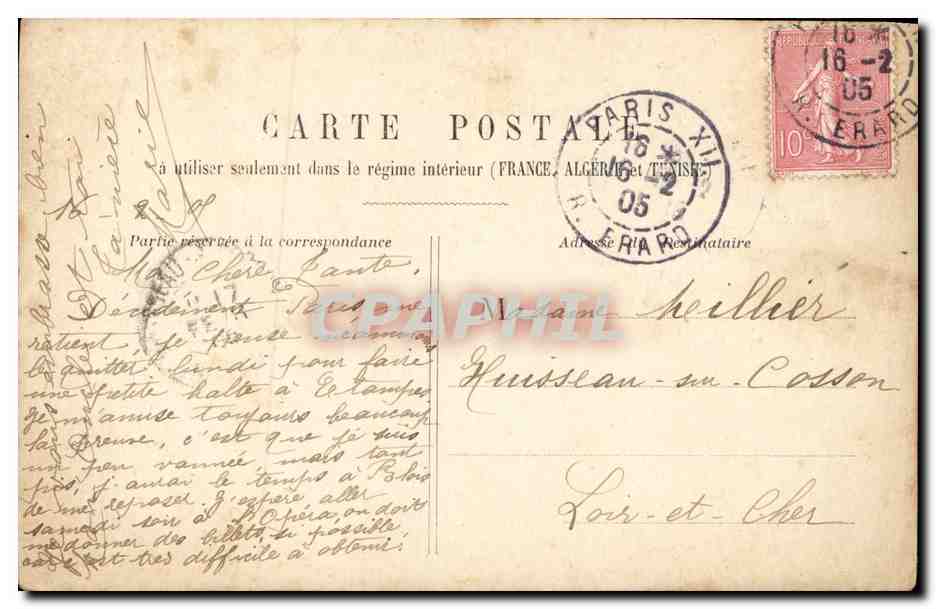 CARTE POSTALE
à utiliser seulement dans le régime intérieur (FRANCE, ALGÉRIE et TUNISIE)
Partie réservée à la correspondance
Adresse du Destinataire
RÉPUBLIQUE FRANÇAISE
10c
16 *
16 -2
05
R. ERARD
PARIS XII
16 *
16 -2
05
R. ERARD
17
CPAPHIL
16 2 05
Ma Chère Tante,
Décidément Paris me
retient, je pense
le quitter lundi pour faire
une petite halte à Etampes
Je m'amuse toujours beaucoup
la preuve, c'est que je suis
un peu vannée, mais tant
pis, j'aurai le temps à Blois
de me reposer. J'espère aller
samedi soir à l'Opéra on doit
me donner des billets, si possible
car c'est très difficile à obtenir.
embrasse bien
et ton
Marie
Madame Meillier
Huisseau-sur-Cosson
Loir-et-Cher